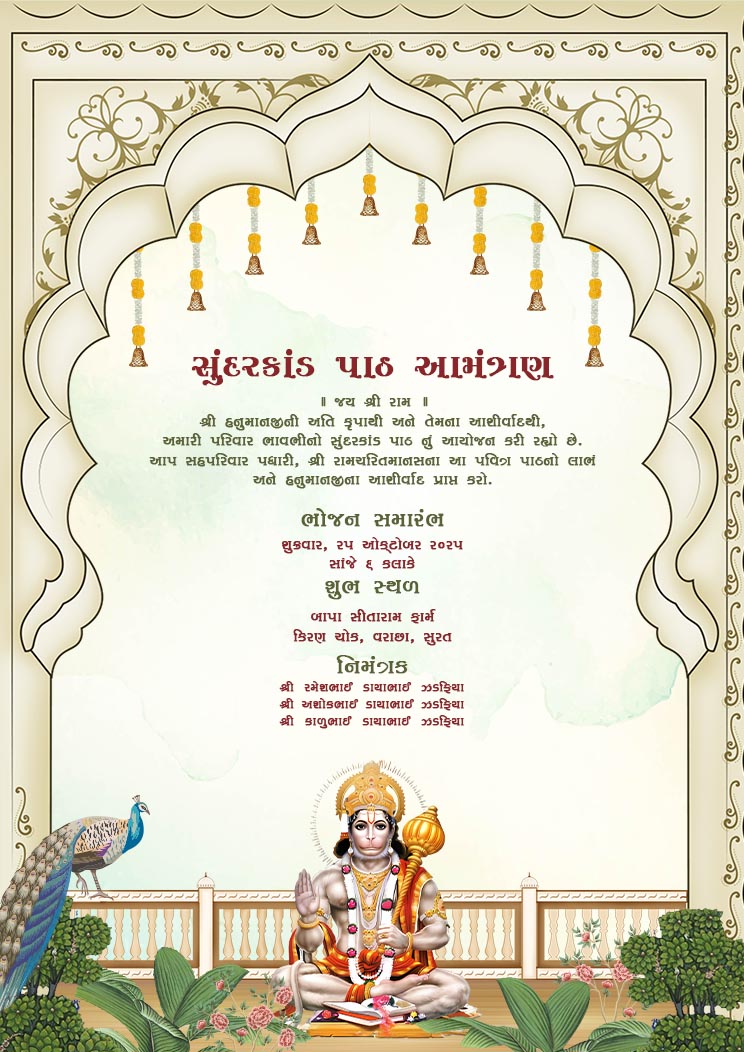 સુંદરકાંડ પાઠ આમંત્રણ
॥ જય શ્રી રામ ॥
શ્રી હનુમાનજીની અતિ કૃપાથી અને તેમના આશીર્વાદથી,
અમારી પરિવાર ભાવભીનો સુંદરકાંડ પાઠ નું આયોજન કરી રહ્યો છે.
આપ સહપરિવાર પધારી, શ્રી રામચરિતમાનસના આ પવિત્ર પાઠનો લાભ
અને હનુમાનજીના આશીર્વાદ પ્રાપ્ત કરો.
ભોજન સમારંભ
શુક્રવાર, ૨૫ ઓક્ટોબર ૨૦૨૫
સાંજે ૬ કલાકે
શુભ સ્થળ
બાપા સીતારામ ફાર્મ
કિરણ ચોક, વરાછા, સુરત
નિમંત્રક
શ્રી રમેશભાઈ ડાયાભાઈ ઝડફિયા
શ્રી અશોકભાઈ ડાયાભાઈ ઝડફિયા
શ્રી કાળુભાઈ ડાયાભાઈ ઝડફિયા